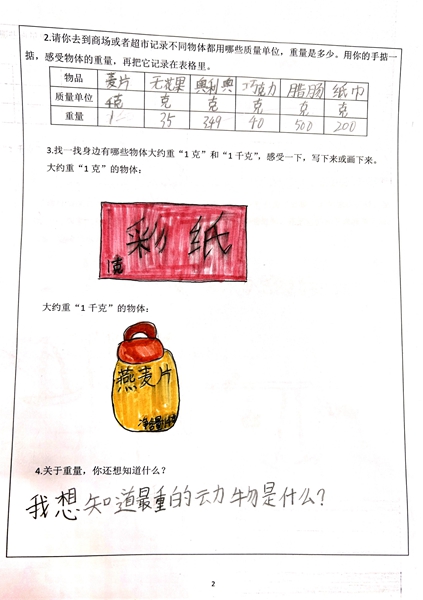 2.请你去到商场或者超市记录不同物体都用哪些质量单位，重量是多少。用你的手掂一
掂，感受物体的重量，再把它记录在表格里。
物品 麦片 无花果 奥利奥 巧克力 腊肠 纸巾
质量单位 千克 克 克 克 克 克
重量 1 35 349 40 500 200
3.找一找身边有哪些物体大约重“1 克”和“1 千克”，感受一下，写下来或画下来。
大约重“1 克”的物体：
彩纸
大约重“1 千克”的物体：
燕麦片
4.关于重量，你还想知道什么？
我想知道最重的动物是什么？
2